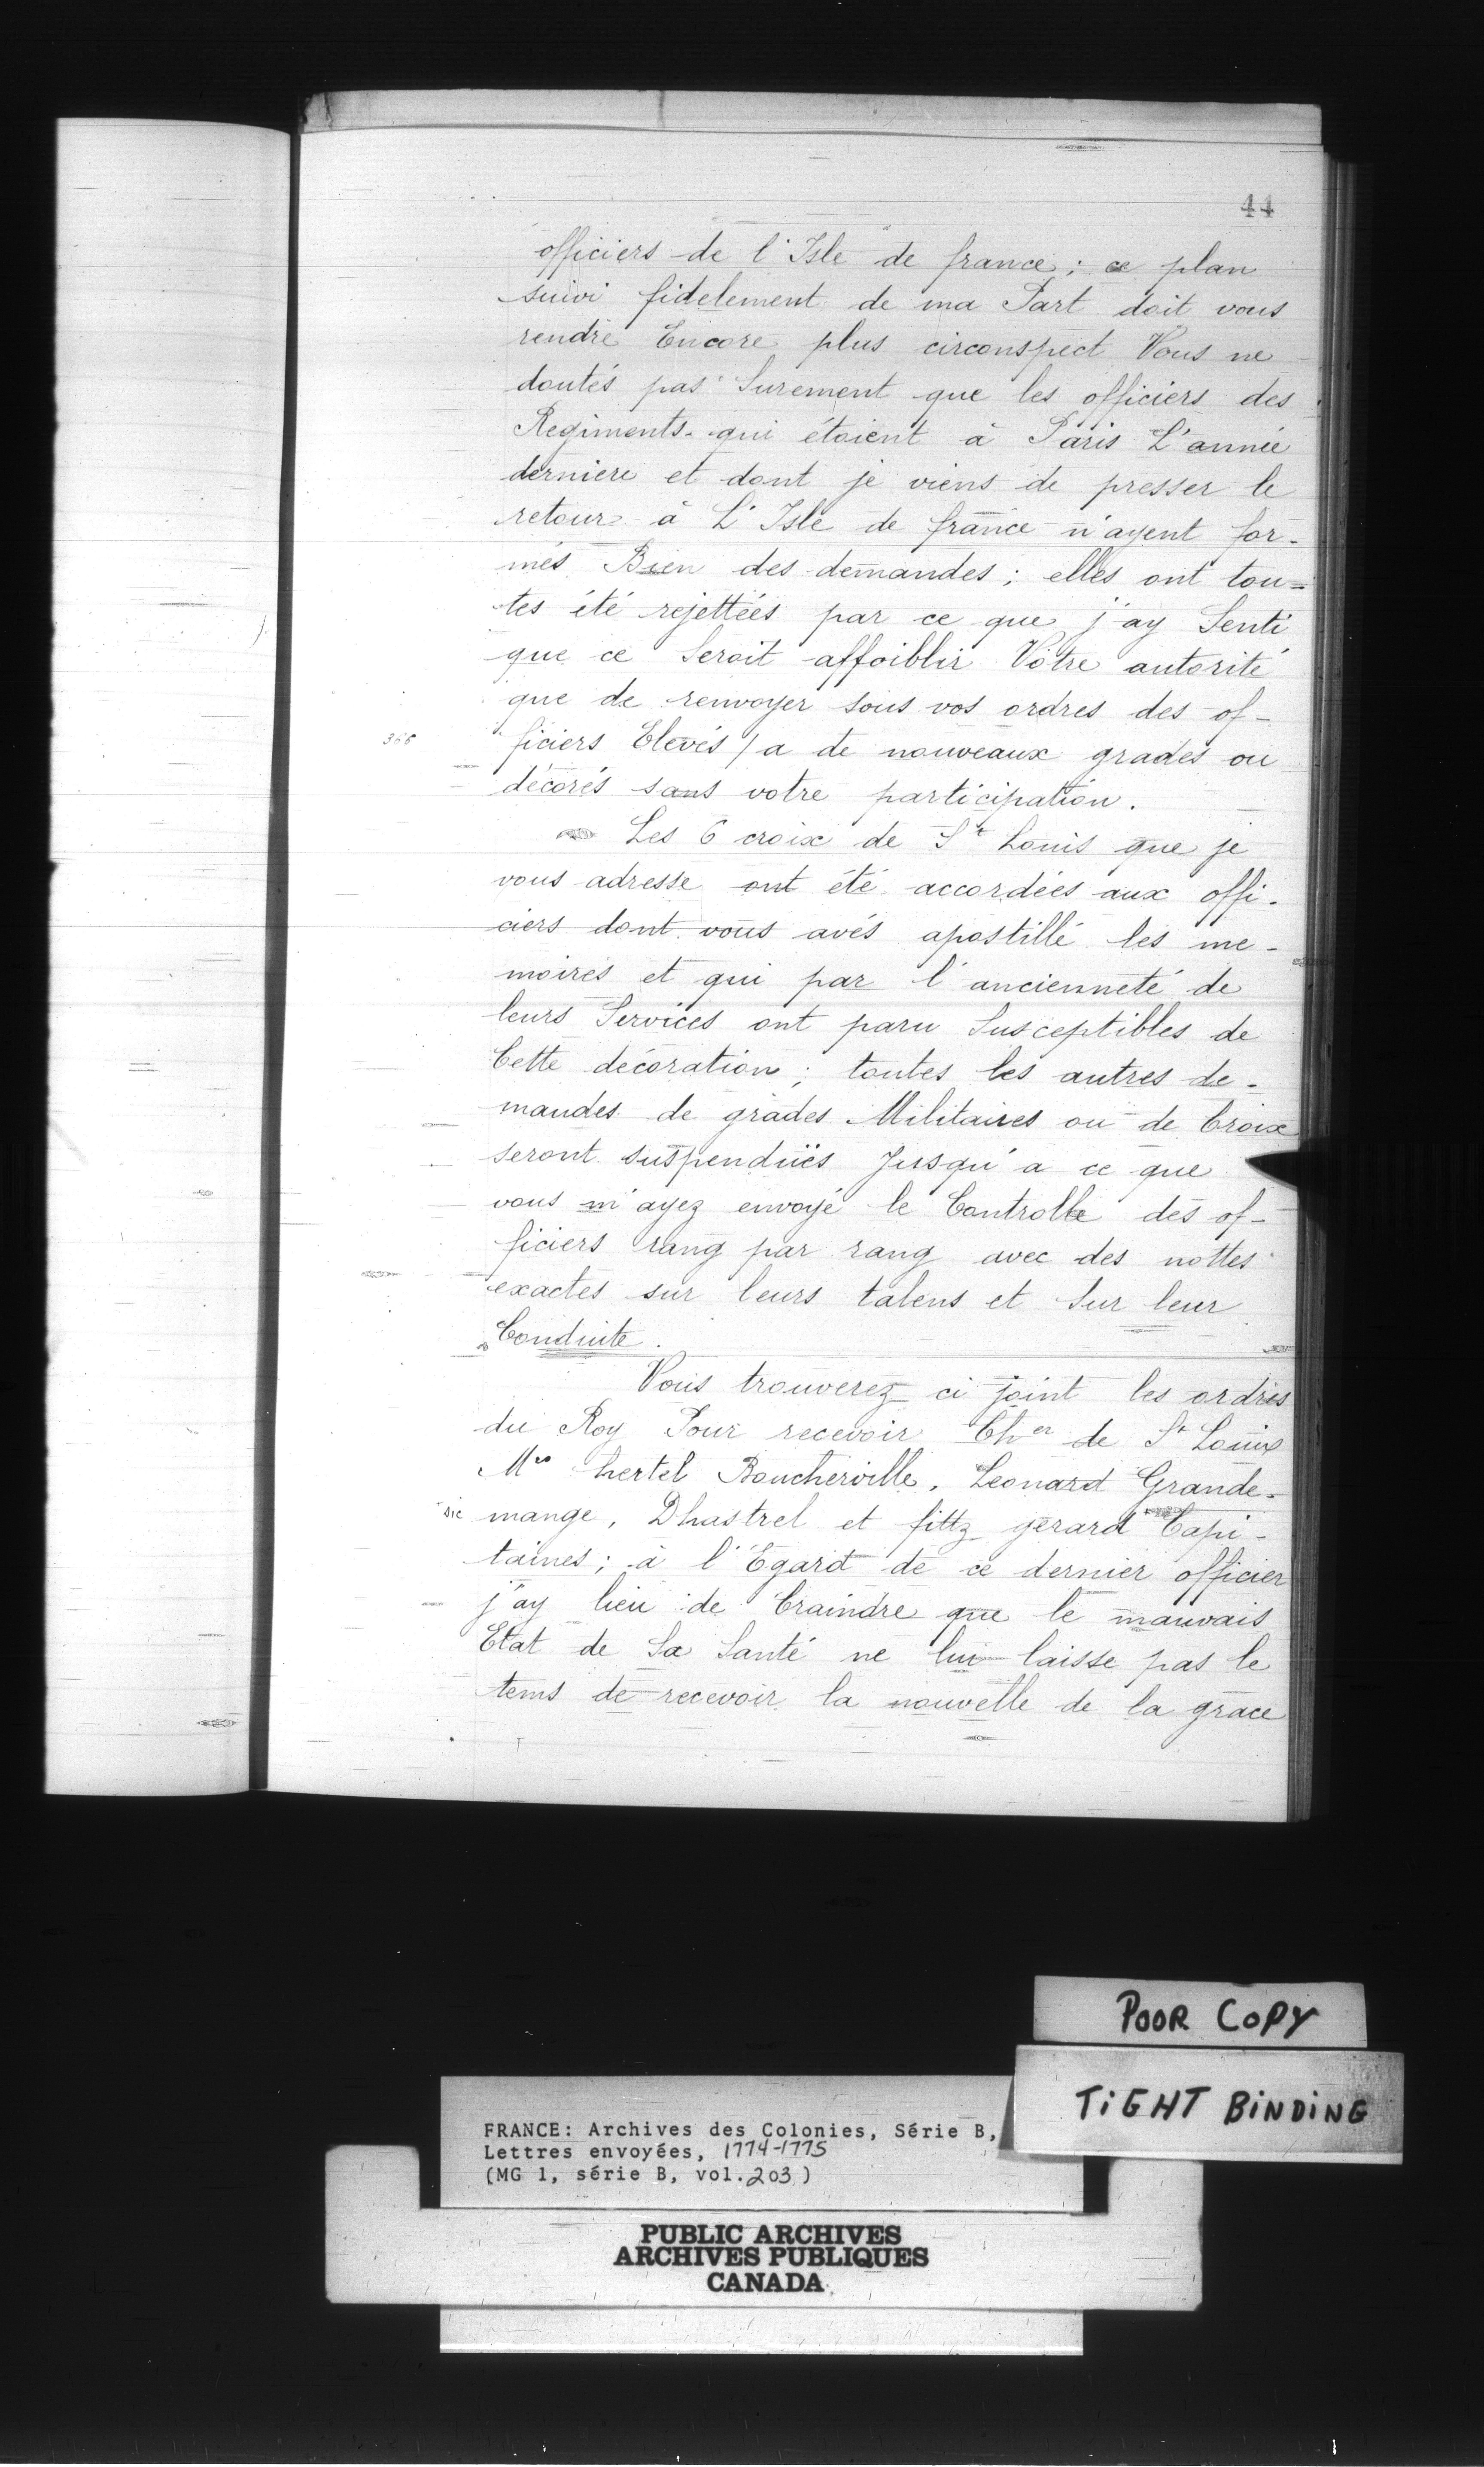 44
officiers de l'Isle de france ; ce plan
suivi fidelement de ma Part doit vous
rendre Encore plus circonspect Vous ne
doutés pas Surement que les officiers des
Regiments qui étoient à Paris L'année
derniere et dont je viens de presser le
retour à L'Isle de france n'ayent for-
més Bien des demandes ; elles ont tou-
tes été rejettées par ce que j'ay Senti
que ce Seroit affoiblir Votre autorité
que de renvoyer sous vos ordres des of-
366 ficiers Elevés / a de nouveaux grades ou
décorés sans votre participation.
Les 6 croix de St Louis que je
vous adresse ont été accordées aux offi-
ciers dont vous avés apostillé les me-
moires et qui par l'ancienneté de
leurs Services ont paru Susceptibles de
Cette décoration ; toutes les autres de-
mandes de grades Militaires ou de Croix
seront suspendües Jusqu'a ce que
vous m'ayez envoyé le Controlle des of-
ficiers rang par rang avec des nottes
exactes sur leurs talens et Sur leur
Conduite.
Vous trouverez ci joint les ordres
du Roy Pour recevoir Cher de St Louis
Mrs hertel Boucherville, Leonard Grande-
sic mange, Dhastrel et fittz gerard Capi-
taines ; à l'Egard de ce dernier officier
j'ay lieu de Craindre que le mauvais
Etat de Sa Santé ne lui laisse pas le
tems de recevoir la nouvelle de la grace
POOR COPY
TiGHT BiNDiNG
FRANCE: Archives des Colonies, Série B,
Lettres envoyées, 1774-1775
(MG 1, série B, vol. 203)
PUBLIC ARCHIVES
ARCHIVES PUBLIQUES
CANADA